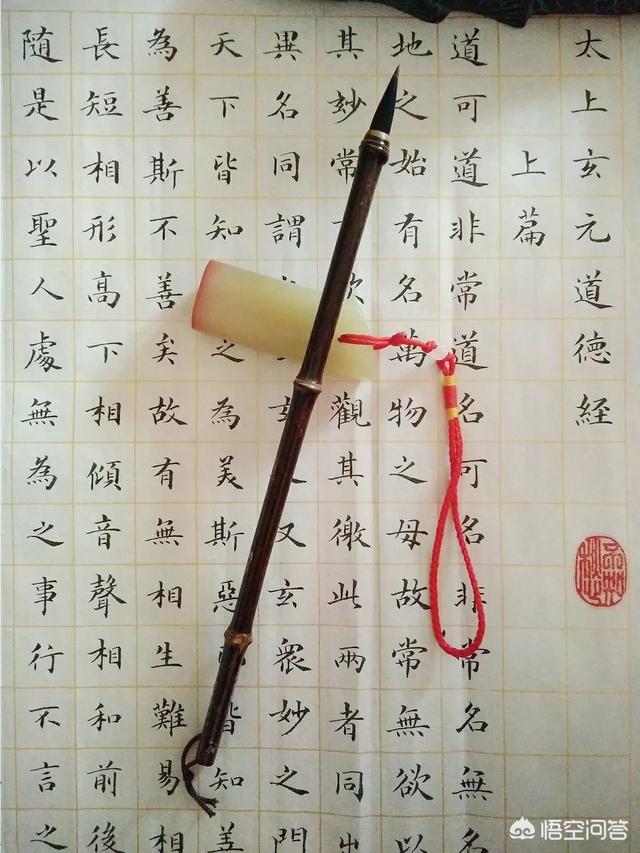 太上玄元道德經
上篇
道可道非常道名可名非常名無名
地之始有名萬物之母故常無欲以
其妙常欲觀其徼此兩者同出
異名同謂玄又玄衆妙之門
天下皆知之為美斯惡皆知善
為善斯不善矣故有無相生難易相
長短相形高下相傾音聲相和前後
隨是以聖人處無為之事行不言之
悟空问答